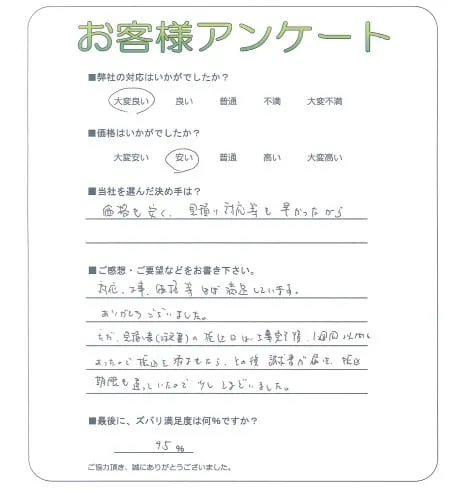 お客様アンケート
■弊社の対応はいかがでしたか？
大変良い 良い 普通 不満 大変不満
■価格はいかがでしたか？
大変安い 安い 普通 高い 大変高い
■当社を選んだ決め手は？
価格も安く、見積り対応等も早かったから
■ご感想・ご要望などをお書き下さい。
対応、工事、価格等ほぼ満足しています。
ありがとうございました。
ただ、見積書(注文書)の振込日は、工事完了後、1週間以内と
あったので振込を済ましたら、その後、請求書が届き、振込
期限も違っていたので少しとまどいました。
■最後に、ズバリ満足度は何%ですか？
95%
ご協力頂き、誠にありがとうございました。